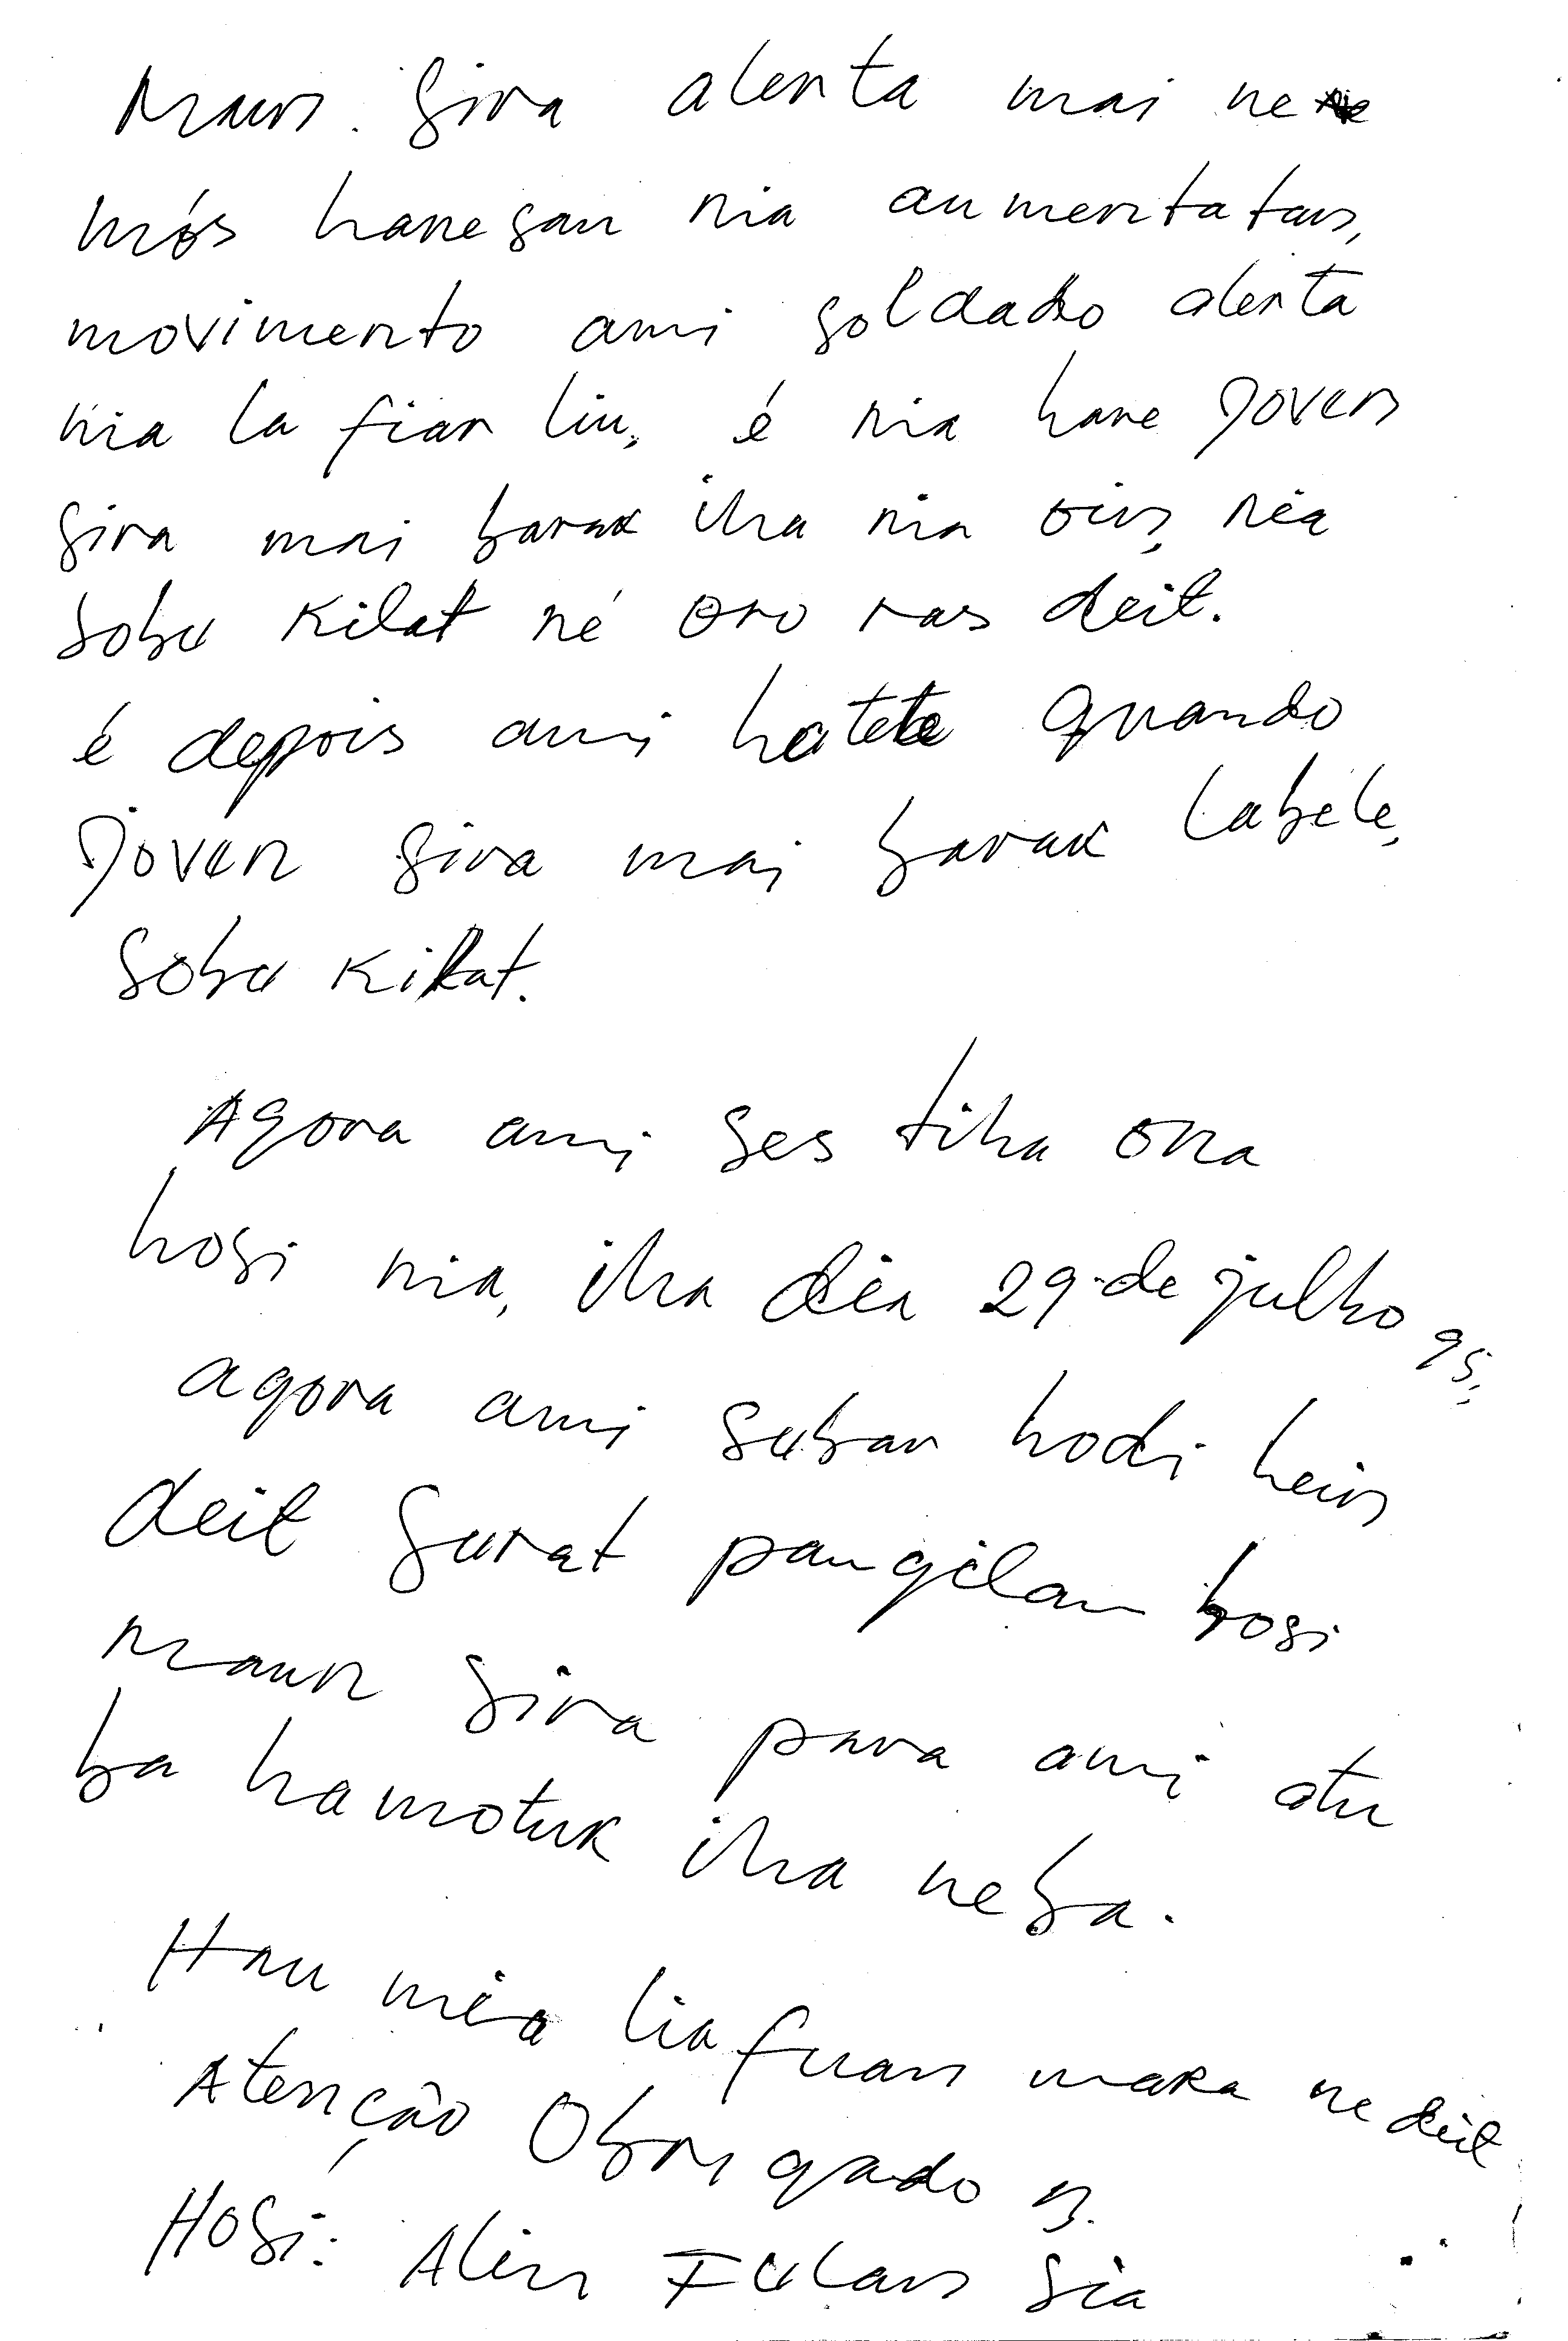 Maun sira alenta mai ne
mós hanesan nia aumentatan,
movimento ami soldado alenta
nia la fiar liu, é nia hare joven
sira mai barak iha nia oin, nia
sobu kilat né oro ras deit.
é depois ami hatete quando
joven sira mai barak labele,
sobu kilat.
Agora ami ses tiha ona
hosi nia, iha dia 29 de julho 95,
agora ami suban hodi hein
deit surat pangilan hosi
maun sira para ami atu
ba hamotuk iha neba.
Hau nia liafuan maka ne deit
Atenção Obrigado n.
Hosi: Alin Fulan Sia